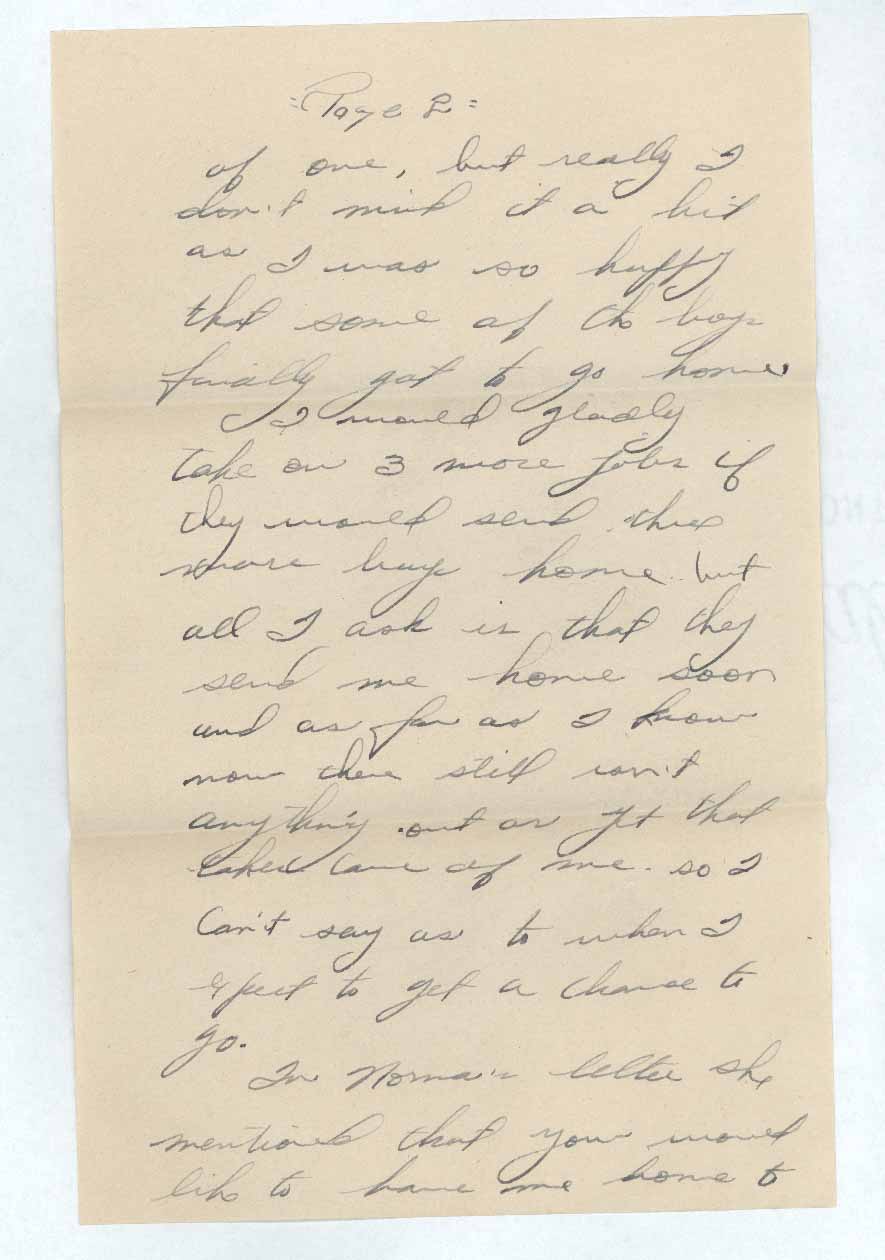 =Page 2=
of one, but really I
don't mind it a bit
as I was so happy
that some of the boys
finally got to go home
I would gladly
take on 3 more jobs if
they would send three
more boys home. but
all I ask is that they
send me home soon
and as far as I know
now there still isn't
anything out as yet that
takes care of me. so I
can't say as to when I
expect to get a chance to
go.
In Norma's letter she
mentioned that you would
like to have me home to